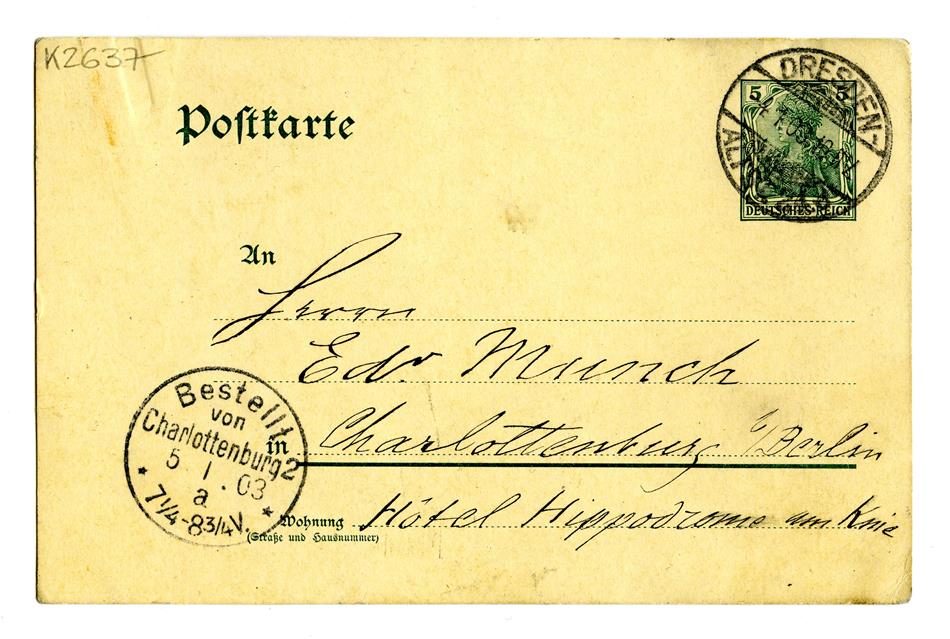 K2637
Postkarte
DRESDEN-
ALTST.
5 5
DEUTSCHES REICH
An
Herrn
Edv Munch
in Charlottenburg b/Berlin
Wohnung Hôtel Hippodrome am Knie
(Straße und Hausnummer)
Bestellt
von
Charlottenburg 2
5 1 .03
a
* 7 1/4-8 3/4 V. *